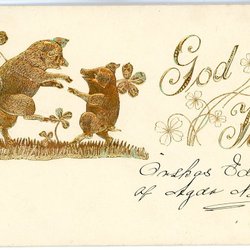 God
J
Önskas Ed
af Agda N